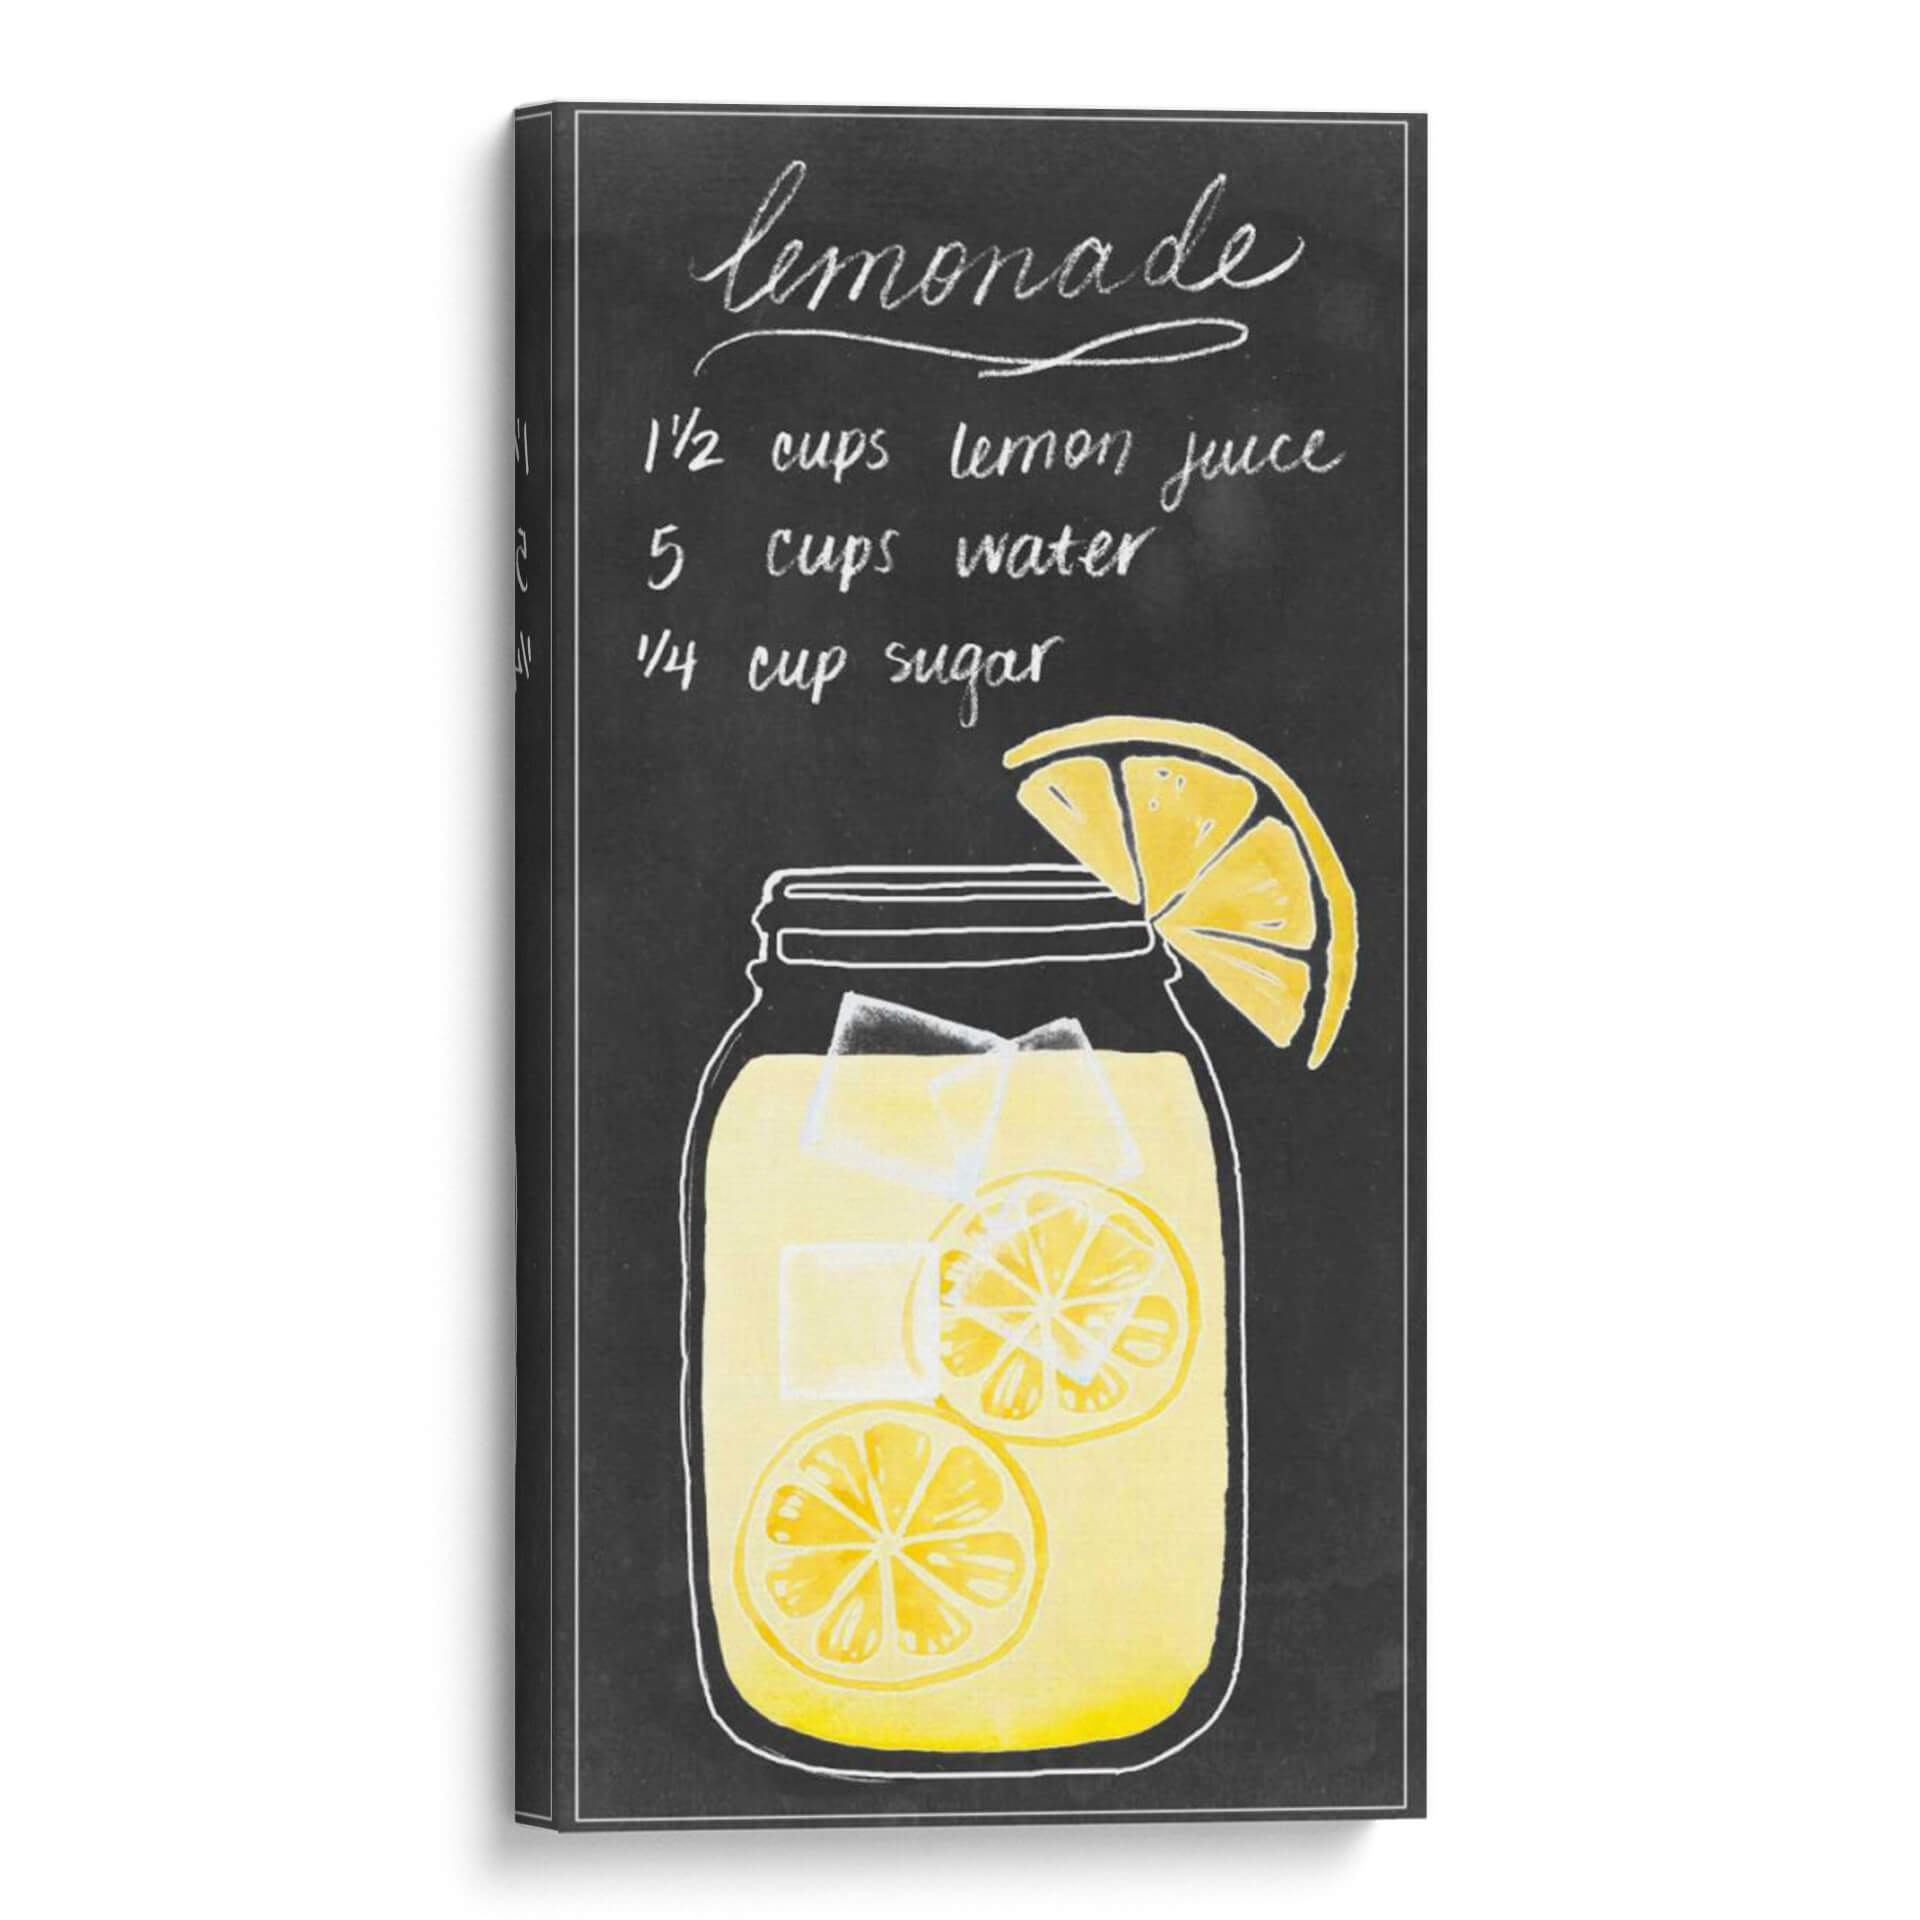 lemonade
1 1/2 cups lemon juice
5 cups water
1/4 cup sugar